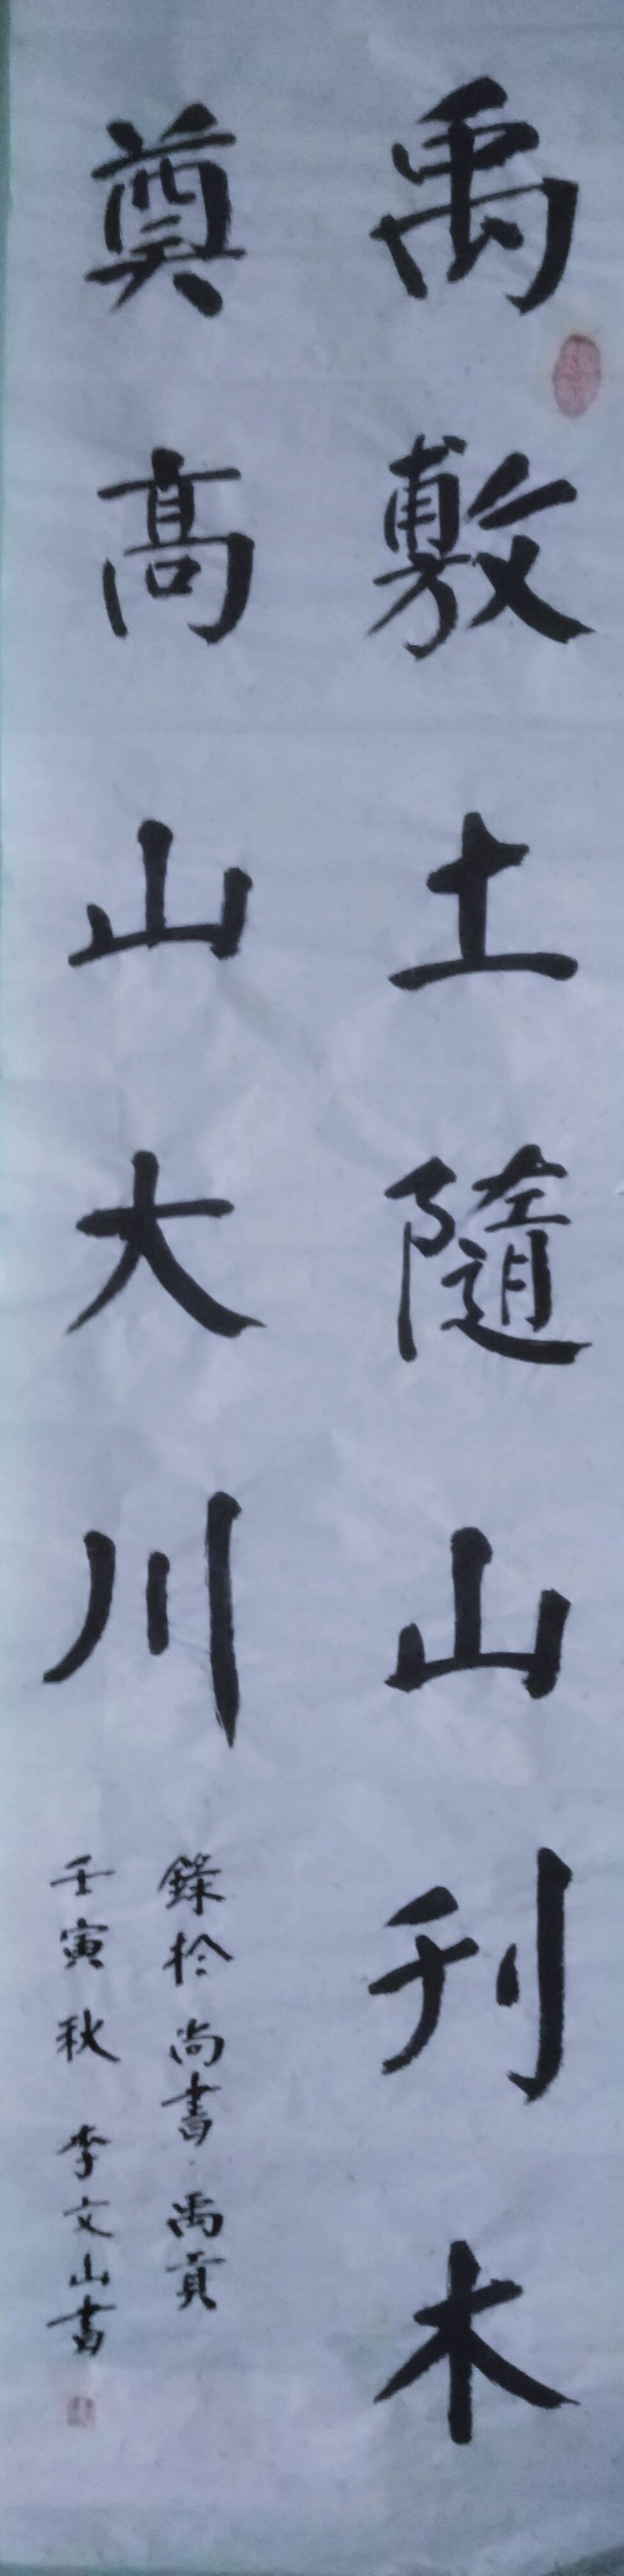 禹敷土隨山刊木
奠高山大川
錄於尚書禹貢
壬寅秋李文山書